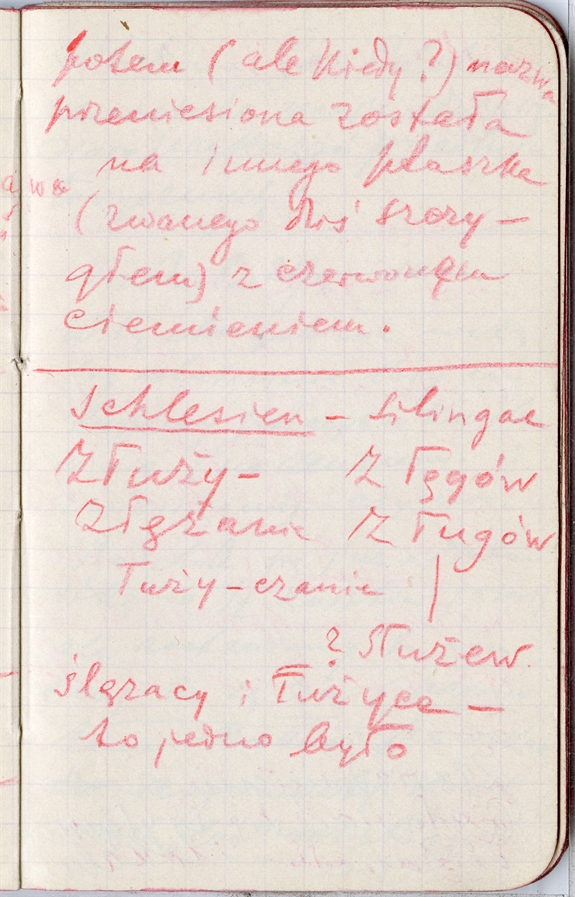 potem (ale kiedy?) nazwa
przeniesiona została
na innego ptaszka
(zwanego dziś szczy-
głem) z czerwonym
ciemieniem.
Schlesien – Silingae
Złuży- Z łęgów
Złężanie Z ługów
Łuży-czanie
? Służew.
ślązacy i Łużyce –
to jedno było